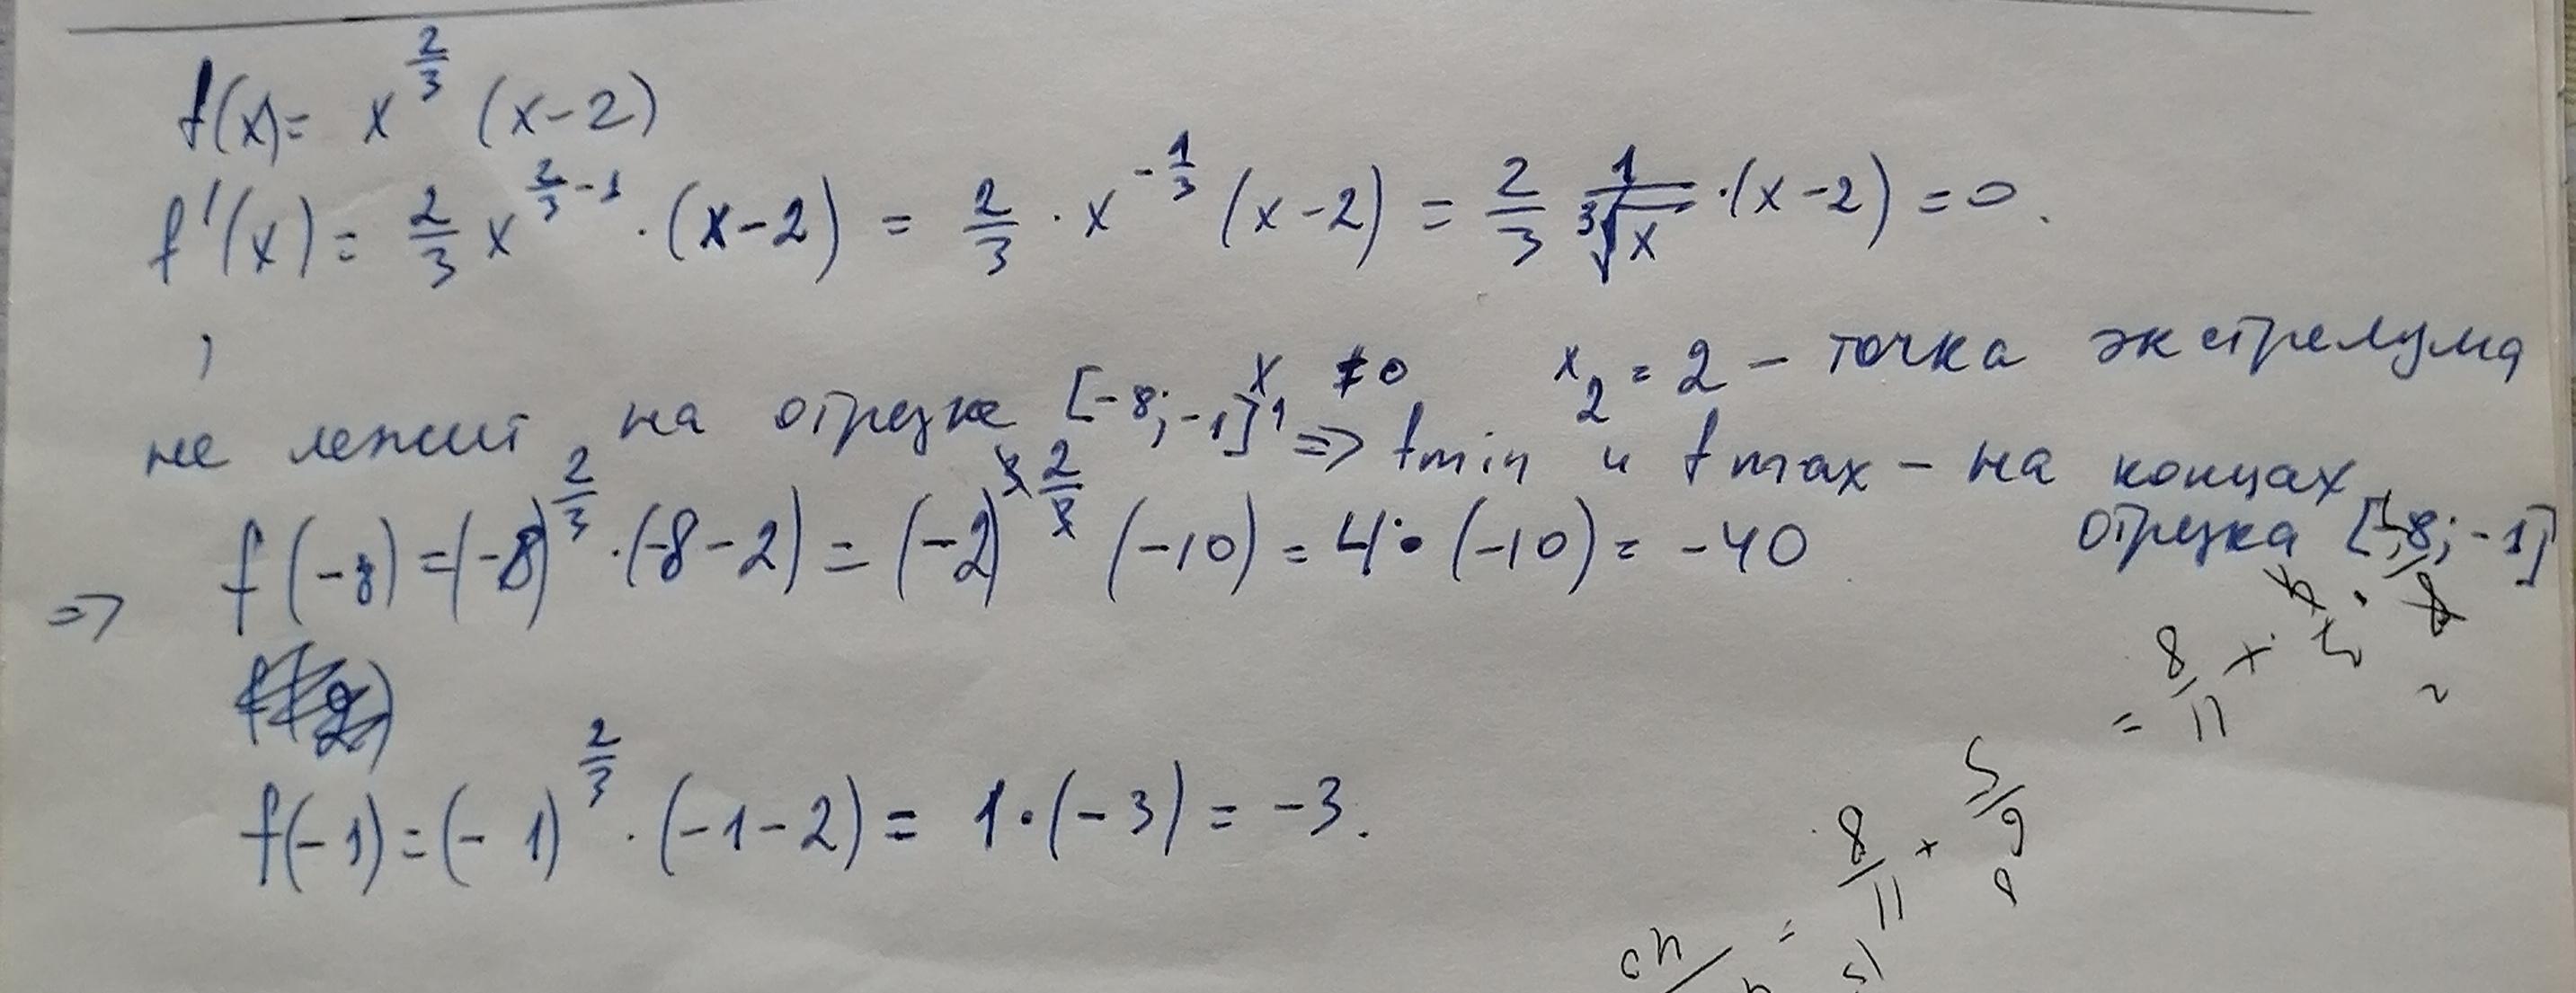 f(x)= x^(2/3) (x-2)
f'(x)= 2/3 x^(2/3-1) · (x-2) = 2/3 · x^(-1/3) (x-2) = 2/3 1/∛x · (x-2) = 0.
, x ≠ 0 x₂ = 2 - точка экстремума
не лежит на отрезке [-8; -1] => fmin и fmax - на концах
отрезка [-8; -1]
=> f(-8) = (-8)^(2/3) · (-8-2) = (-2)^(3·2/3) (-10) = 4 · (-10) = -40
f(-1) = (-1)^(2/3) · (-1-2) = 1 · (-3) = -3.
= 8/11 ×
8/11 × 5/9
=